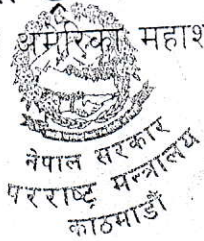 अमेरिका महाश
नेपाल सरकार
परराष्ट्र मन्त्रालय
काठमाडौं